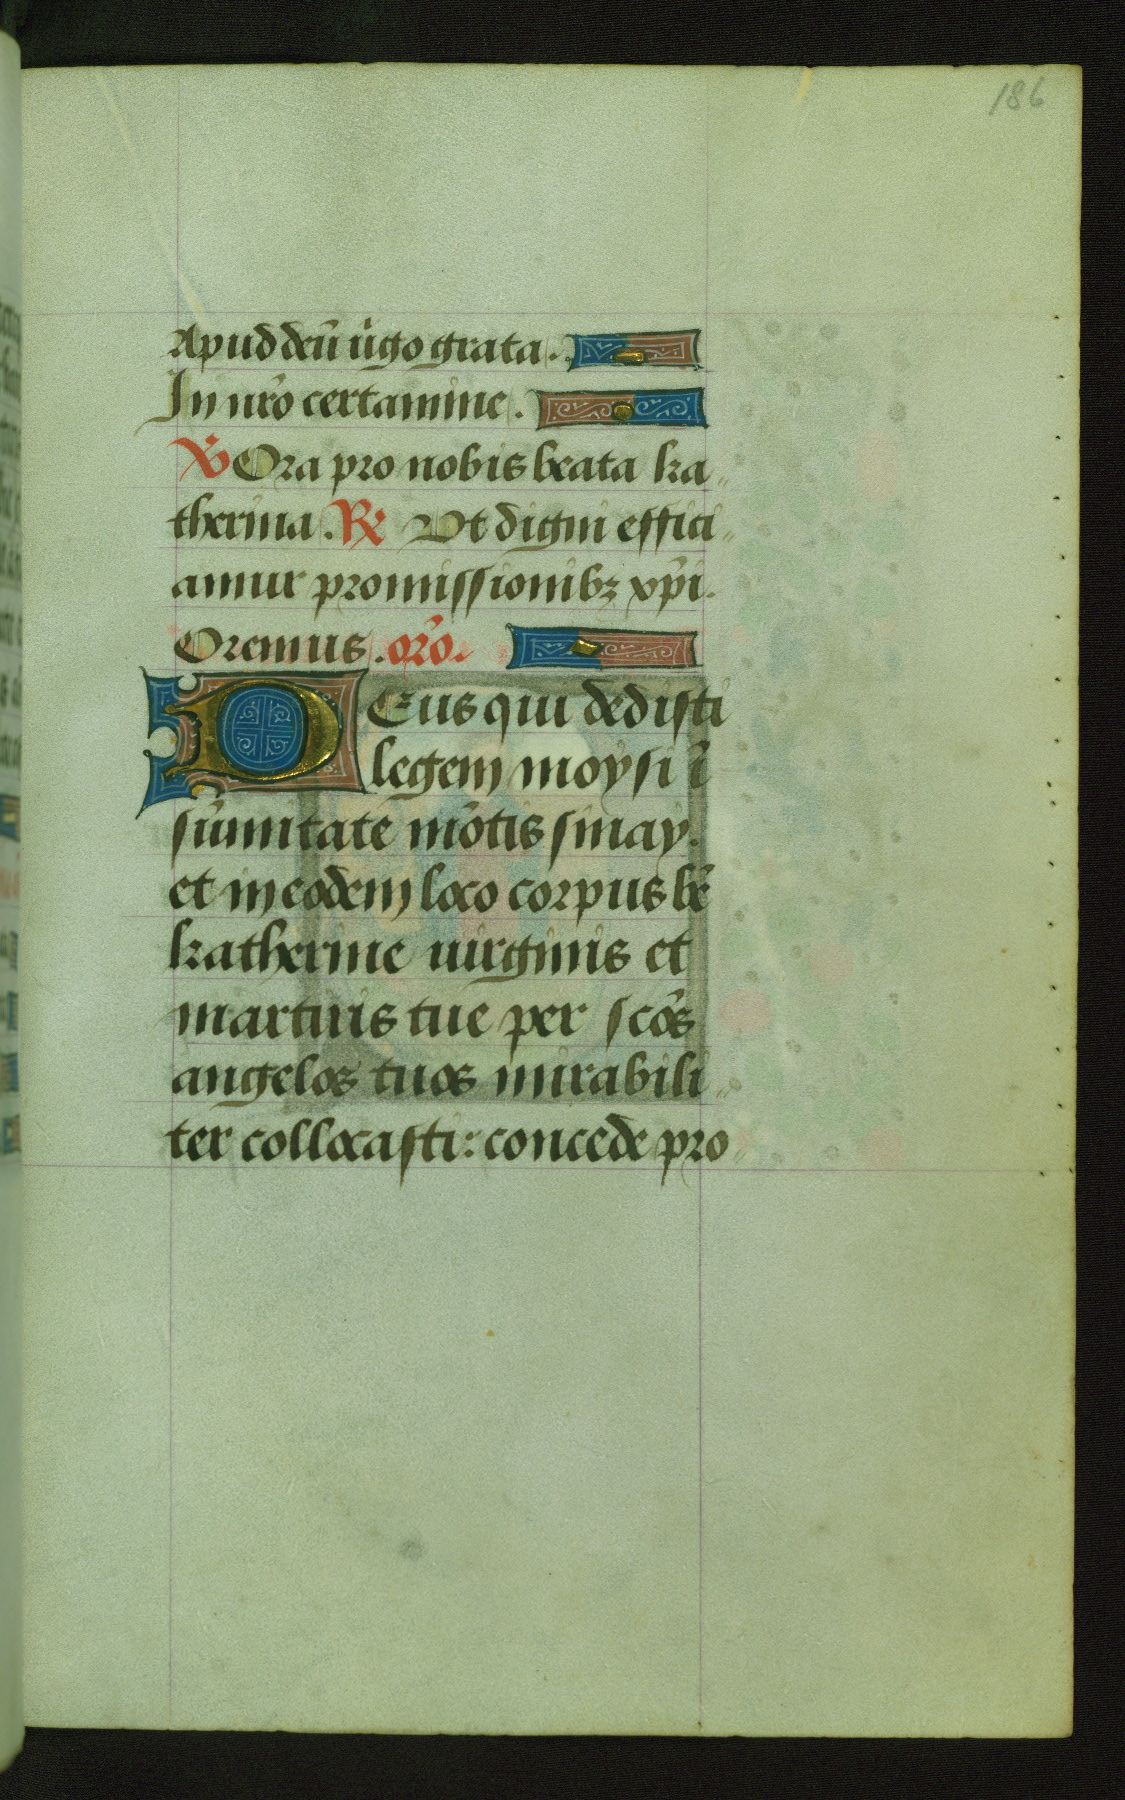 186
Apud deū ūgo grata.
In nr̄o certamine.
℣ Ora pro nobis beata ka„
therina. ℟ Vt digni effici„
amur promissionibꝫ xp̄i.
Oremus. or̄o.
DEus qui dedisti
legem moysi ī
sūmitate mōtis sinay.
et in eodem loco corpus bē
katherine uirginis et
martiris tue per scōs
angelos tuos mirabili„
ter collocasti: concede pro„